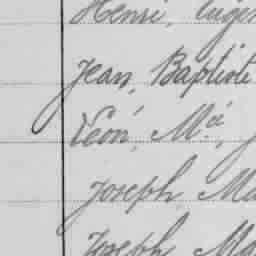 Henri, Eugèn
Jean, Baptiste
Léon, Mie, J
Joseph, Ma
Joseph, Ma